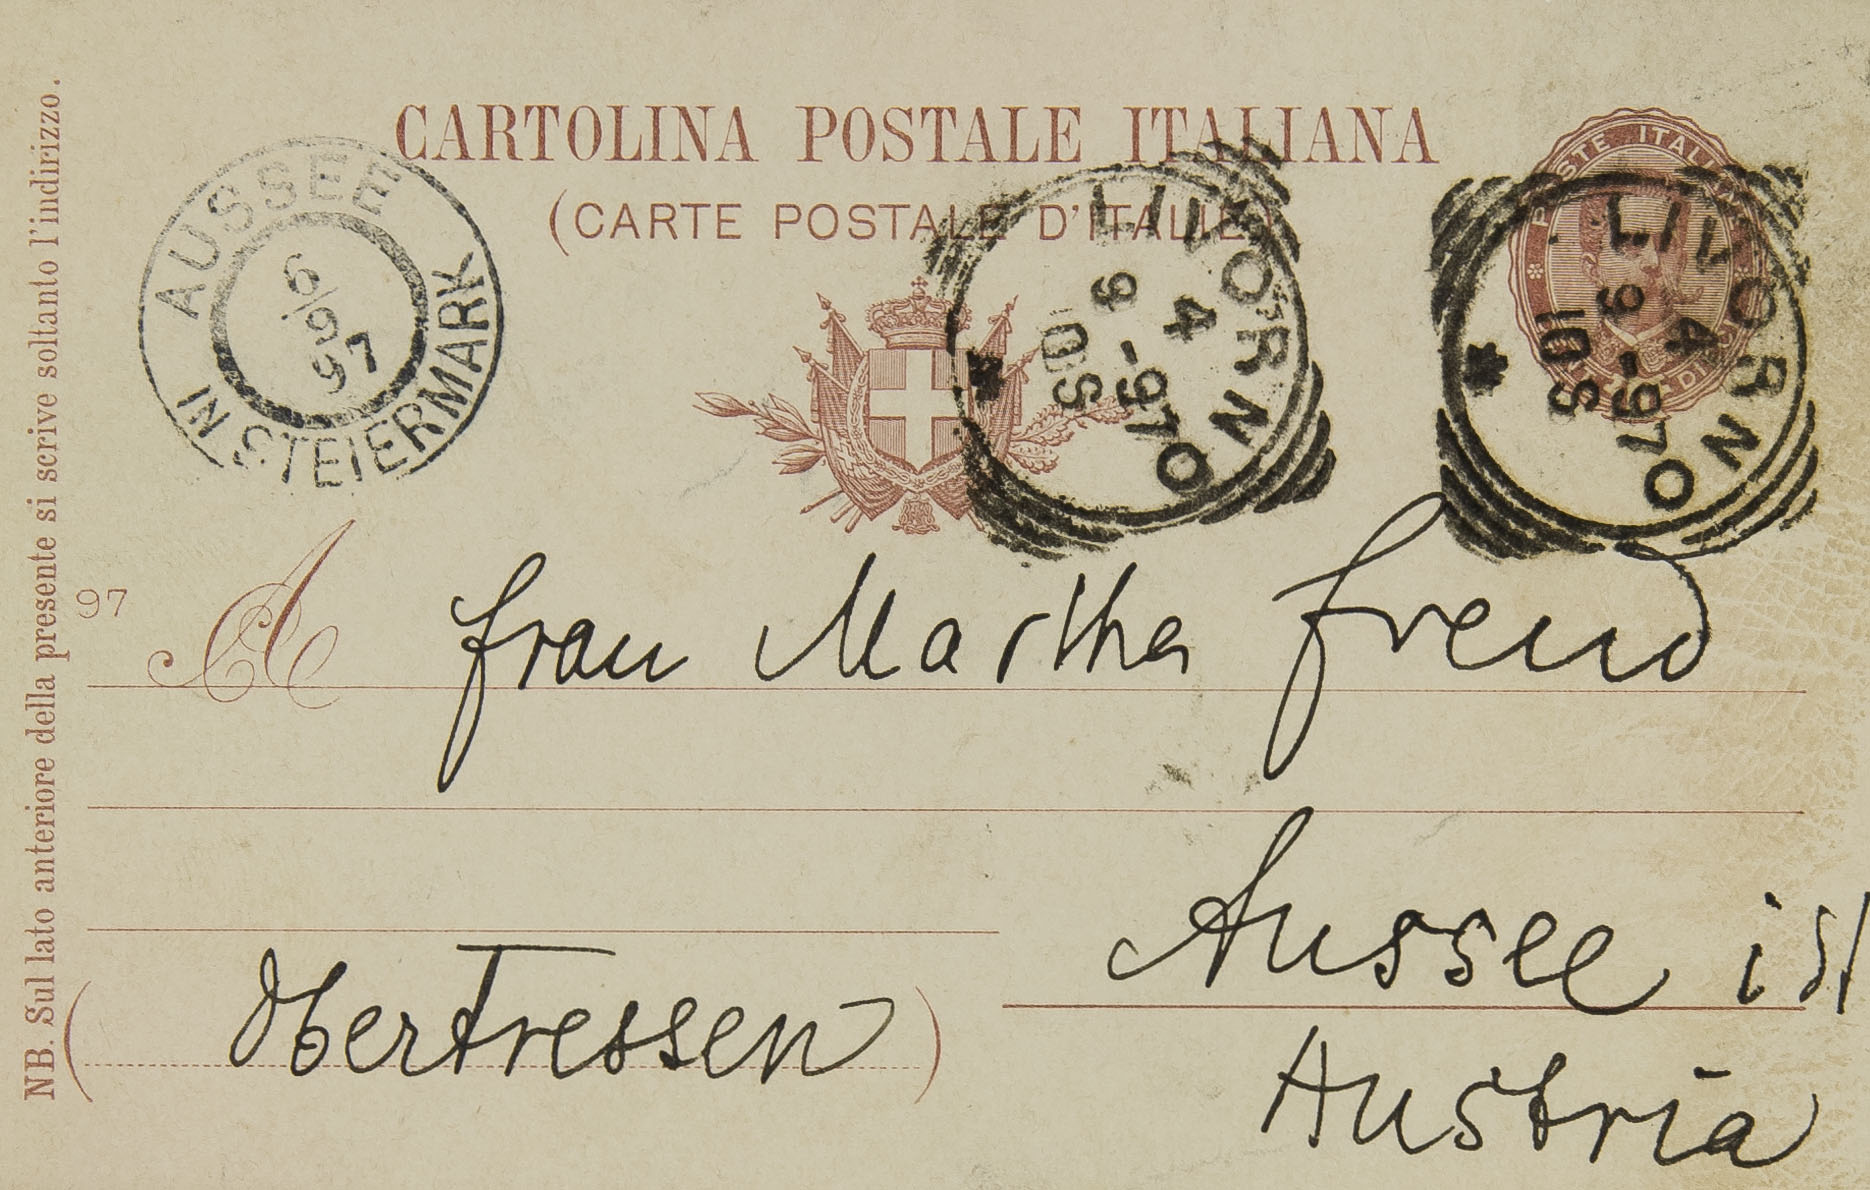 CARTOLINA POSTALE ITALIANA
(CARTE POSTALE D'ITALIE)
AUSSEE
6/9
97
IN STEIERMARK
LIVORNO
4
9-97
10S
LIVORNO
4
9-97
10S
POSTE ITALIANE
NB. Sul lato anteriore della presente si scrive soltanto l'indirizzo.
97
A Frau Martha Freud
Aussee i/St
(Obertressen)
Austria